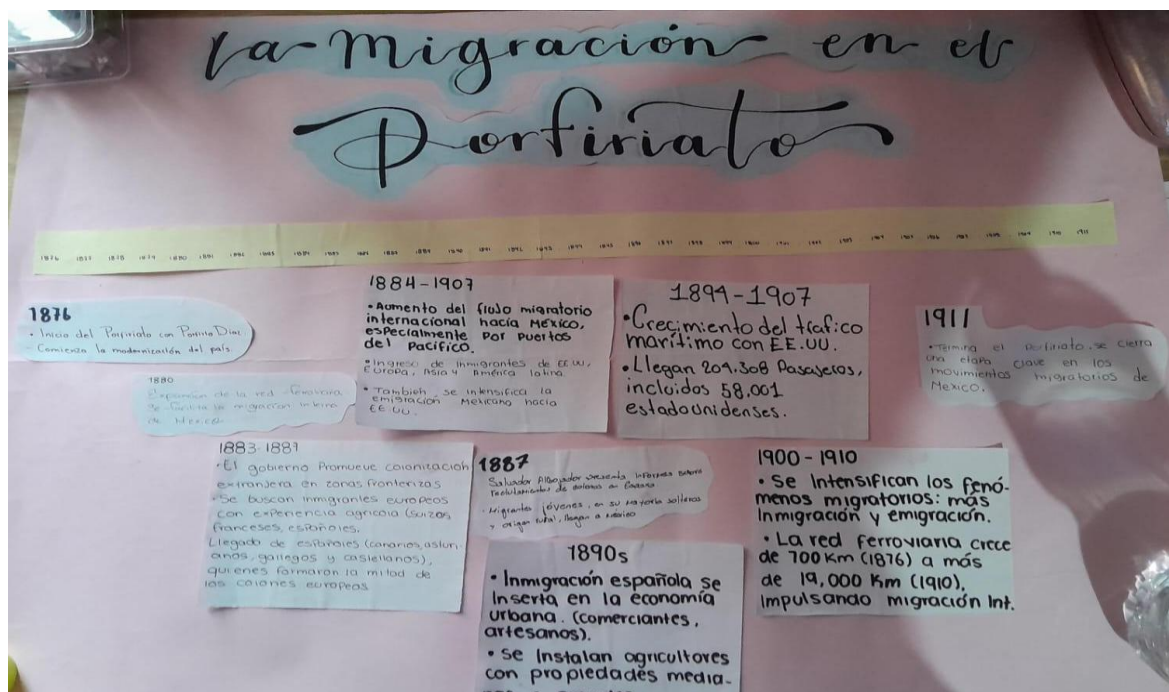 La Migración en el
Porfiriato
1876 1877 1878 1879 1880 1881 1882 1883 1884 1885 1887 1888 1889 1890 1891 1892 1893 1894 1895 1896 1897 1898 1899 1900 1901 1903 1904 1905 1906 1907 1908 1909 1910 1911
1876
• Inicia del Porfiriato con Porfirio Díaz
- Comienza la modernización del país.
1880
Expansion de la red ferroviaria
se facilita la migración interna
de Mexico
1884-1907
• Aumento del flujo migratorio
internacional hacía México,
especialmente por puertos
del Pacífico.
• Ingreso de inmigrantes de EE.UU,
Europa, Asia y América latina.
• También se intensifica la
emigración Mexicano hacía
EE.UU.
1894-1907
• Crecimiento del trafico
marítimo con EE.UU.
• Llegan 209.308 Pasajeros,
incluidos 58.001
estadounidenses.
1911
• Termina el Porfiriato, se cierra
una etapa clave en los
movimientos migratorios de
Mexico.
1883-1887
• El gobierno Promueve colonización
extranjera en zonas fronterizas
• Se buscan inmigrantes europeos
con experiencia agrícola (suizos
franceses, españoles.
Llegada de españoles (canarios, asturi-
anos, gallegos y castellanos),
quienes formaron la mitad de
los colones europeos
1887
Salvador presenta informes sobre
reclutamiento de colonos en
• Migrantes jóvenes, en su mayoría solteros
y origen rural, llegan a México
1890s
• Inmigración española se
Inserta en la economía
urbana. (comerciantes,
artesanos).
• Se Instalan agricultores
con propiedades media-
1900-1910
• Se Intensifican los fenó-
menos migratorios: más
Inmigración y emigración.
• La red ferroviaria crece
de 700 Km (1876) a más
de 19,000 Km (1910),
Impulsando migración Int.